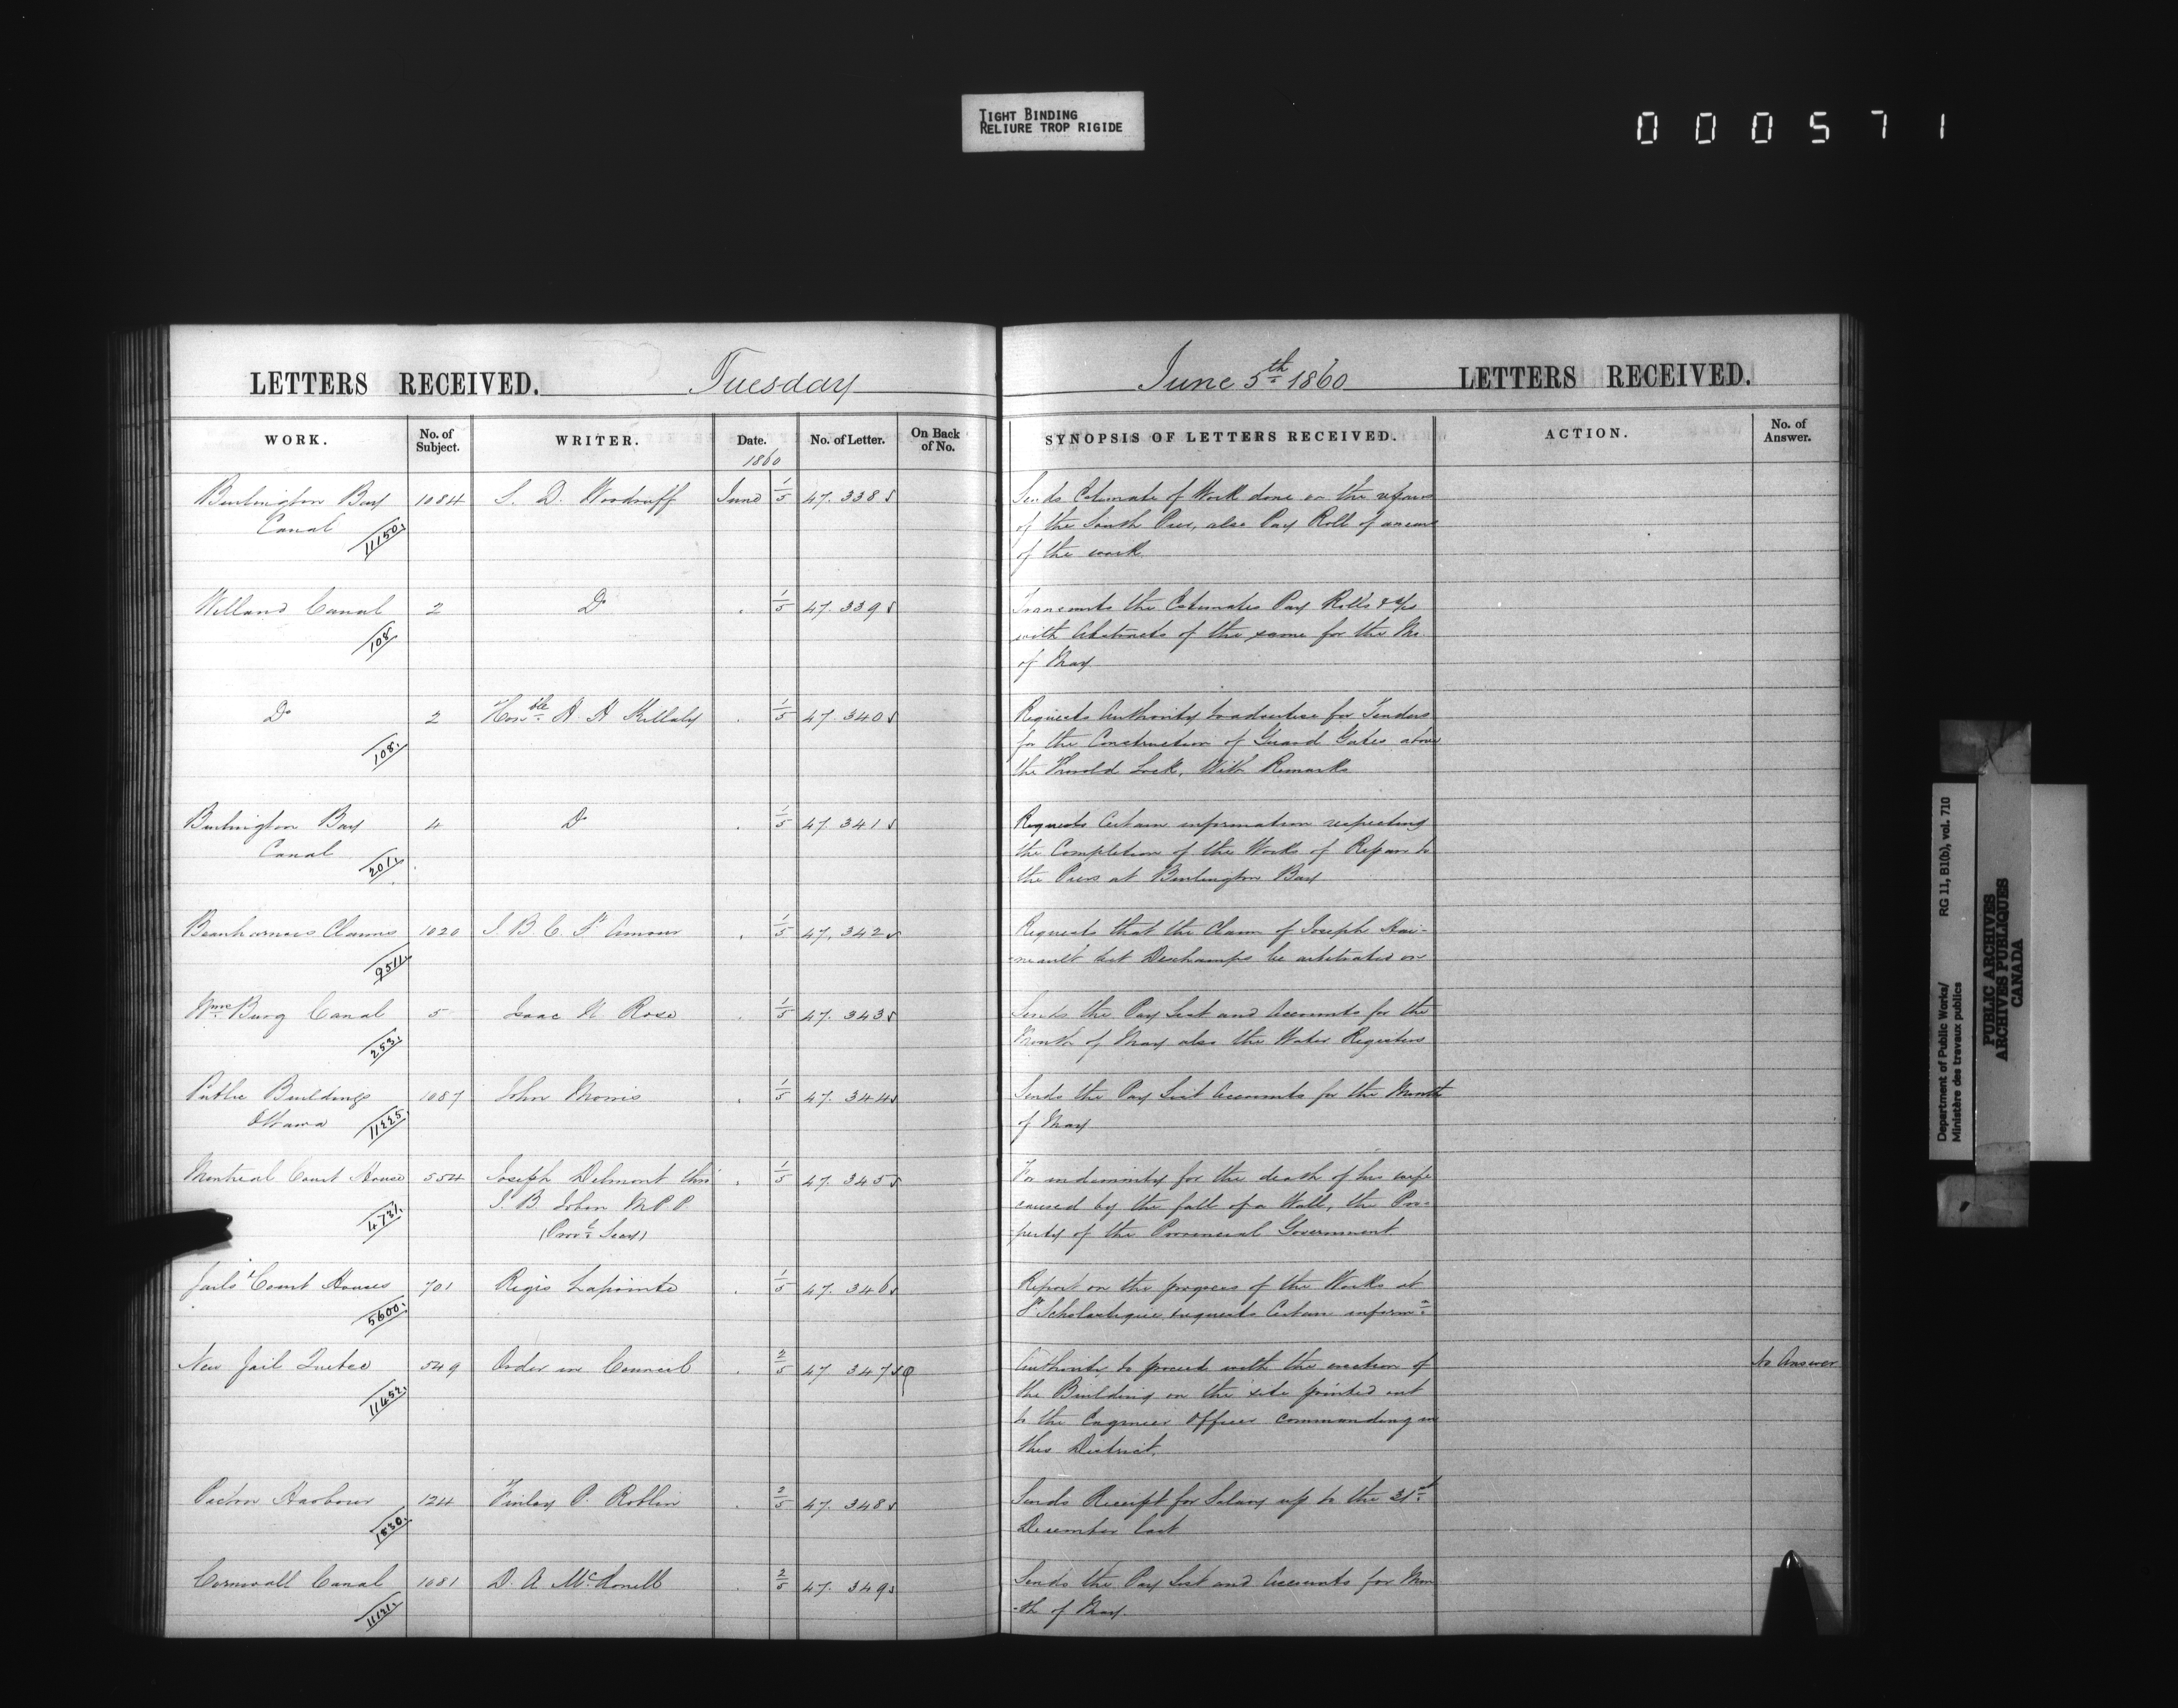 TIGHT BINDING
RELIURE TROP RIGIDE
000571
LETTERS RECEIVED. Tuesday
June 5th 1860 LETTERS RECEIVED.
WORK. No. of Subject. WRITER. Date. No. of Letter. On Back of No. SYNOPSIS OF LETTERS RECEIVED. ACTION. No. of Answer.
1860
Burlington Bay 1084 S. D. Woodruff June 1/5 47.338 Sends Estimate of Work done on the repairs
Canal 11150. of the South Pier, also Pay Roll of
of the work
Welland Canal 2 Do 1/5 47.339 Transmits the Estimates Pay Rolls &
108 with Abstracts of the same for the
of May
Do 2 Honble H. H. Killaly 1/5 47.340 Requests Authority to advertise for Tenders
108. for the Construction of Guard Gates above
the Thorold Lock. With Remarks
Burlington Bay 4 Do 1/5 47.341 Requests Certain information respecting
Canal 201. the Completion of the Works of Repair to
the Piers at Burlington Bay
Beauharnois Claims 1020 J. B. C. St Amour 1/5 47.342 Requests that the Claim of Joseph
9511. Deschamps be arbitrated on
Wms Burg Canal 5 Isaac N. Rose 1/5 47.343 Sends the Pay List and Accounts for the
253. Month of May also the Water Registers
Public Buildings 1087 John Morris 1/5 47.344 Sends the Pay List Accounts for the Month
Ottawa 11225. of May
Montreal Court House 554 Joseph Delmont thro 1/5 47.345 For indemnity for the death of his wife
4731. J. B. Jobin M.P.P. caused by the fall of a Wall, the Pro-
(Provl Secy) perty of the Provincial Government.
Jails & Court Houses 701 Regis Lapointe 1/5 47.346 Report on the progress of the Works at
5600. St Scholastique, requests Certain informn
New Jail Quebec 549 Order in Council 2/5 47 347 Authority to proceed with the erection of No Answer
11452. the Building on the site pointed out
to the Engineer Officer Commanding in
this District.
Picton Harbour 124 Finlay P. Roblin 2/5 47.348 Sends Receipt for Salary up to the 31st
1830. December last
Cornwall Canal 1081 D. A. McDonell 2/5 47.349 Sends the Pay List and Accounts for Mon
11121. -th of May.
Department of Public Works/ RG 11, B1(b), vol. 710
Ministère des travaux publics
PUBLIC ARCHIVES
ARCHIVES PUBLIQUES
CANADA